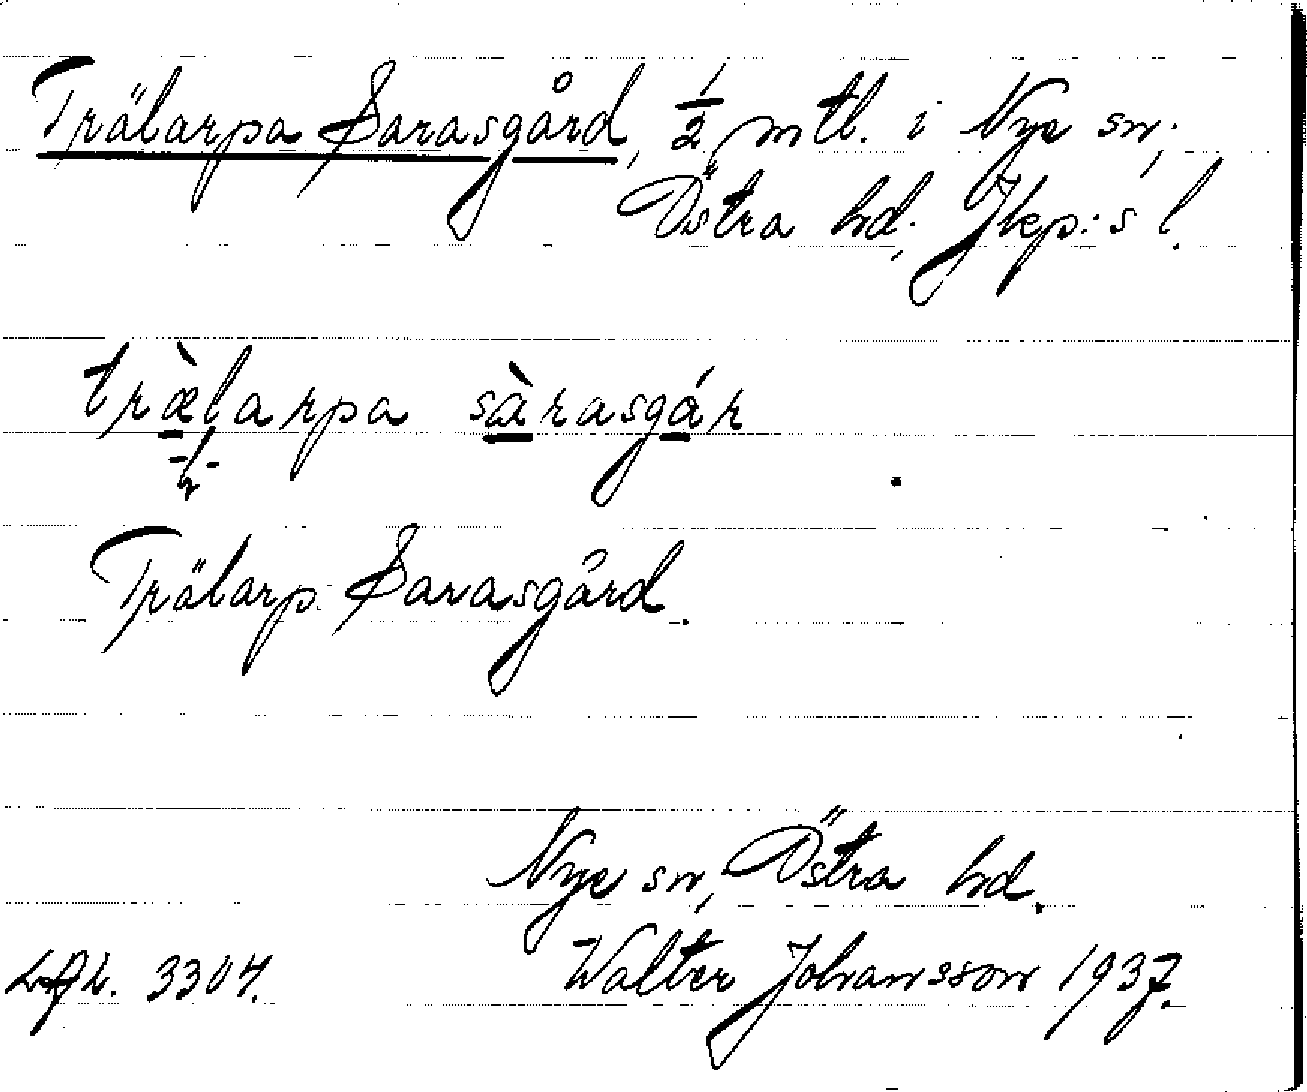 Trälarpa Sarasgård, 1/2 mtl. i Nye sn,
Östra hd, Jkp:s l.
træ̀larpa sàrasgár
-l-
Trälarp Sarasgård.
Nye sn, Östra hd.
3304. Walter Johansson 1937.